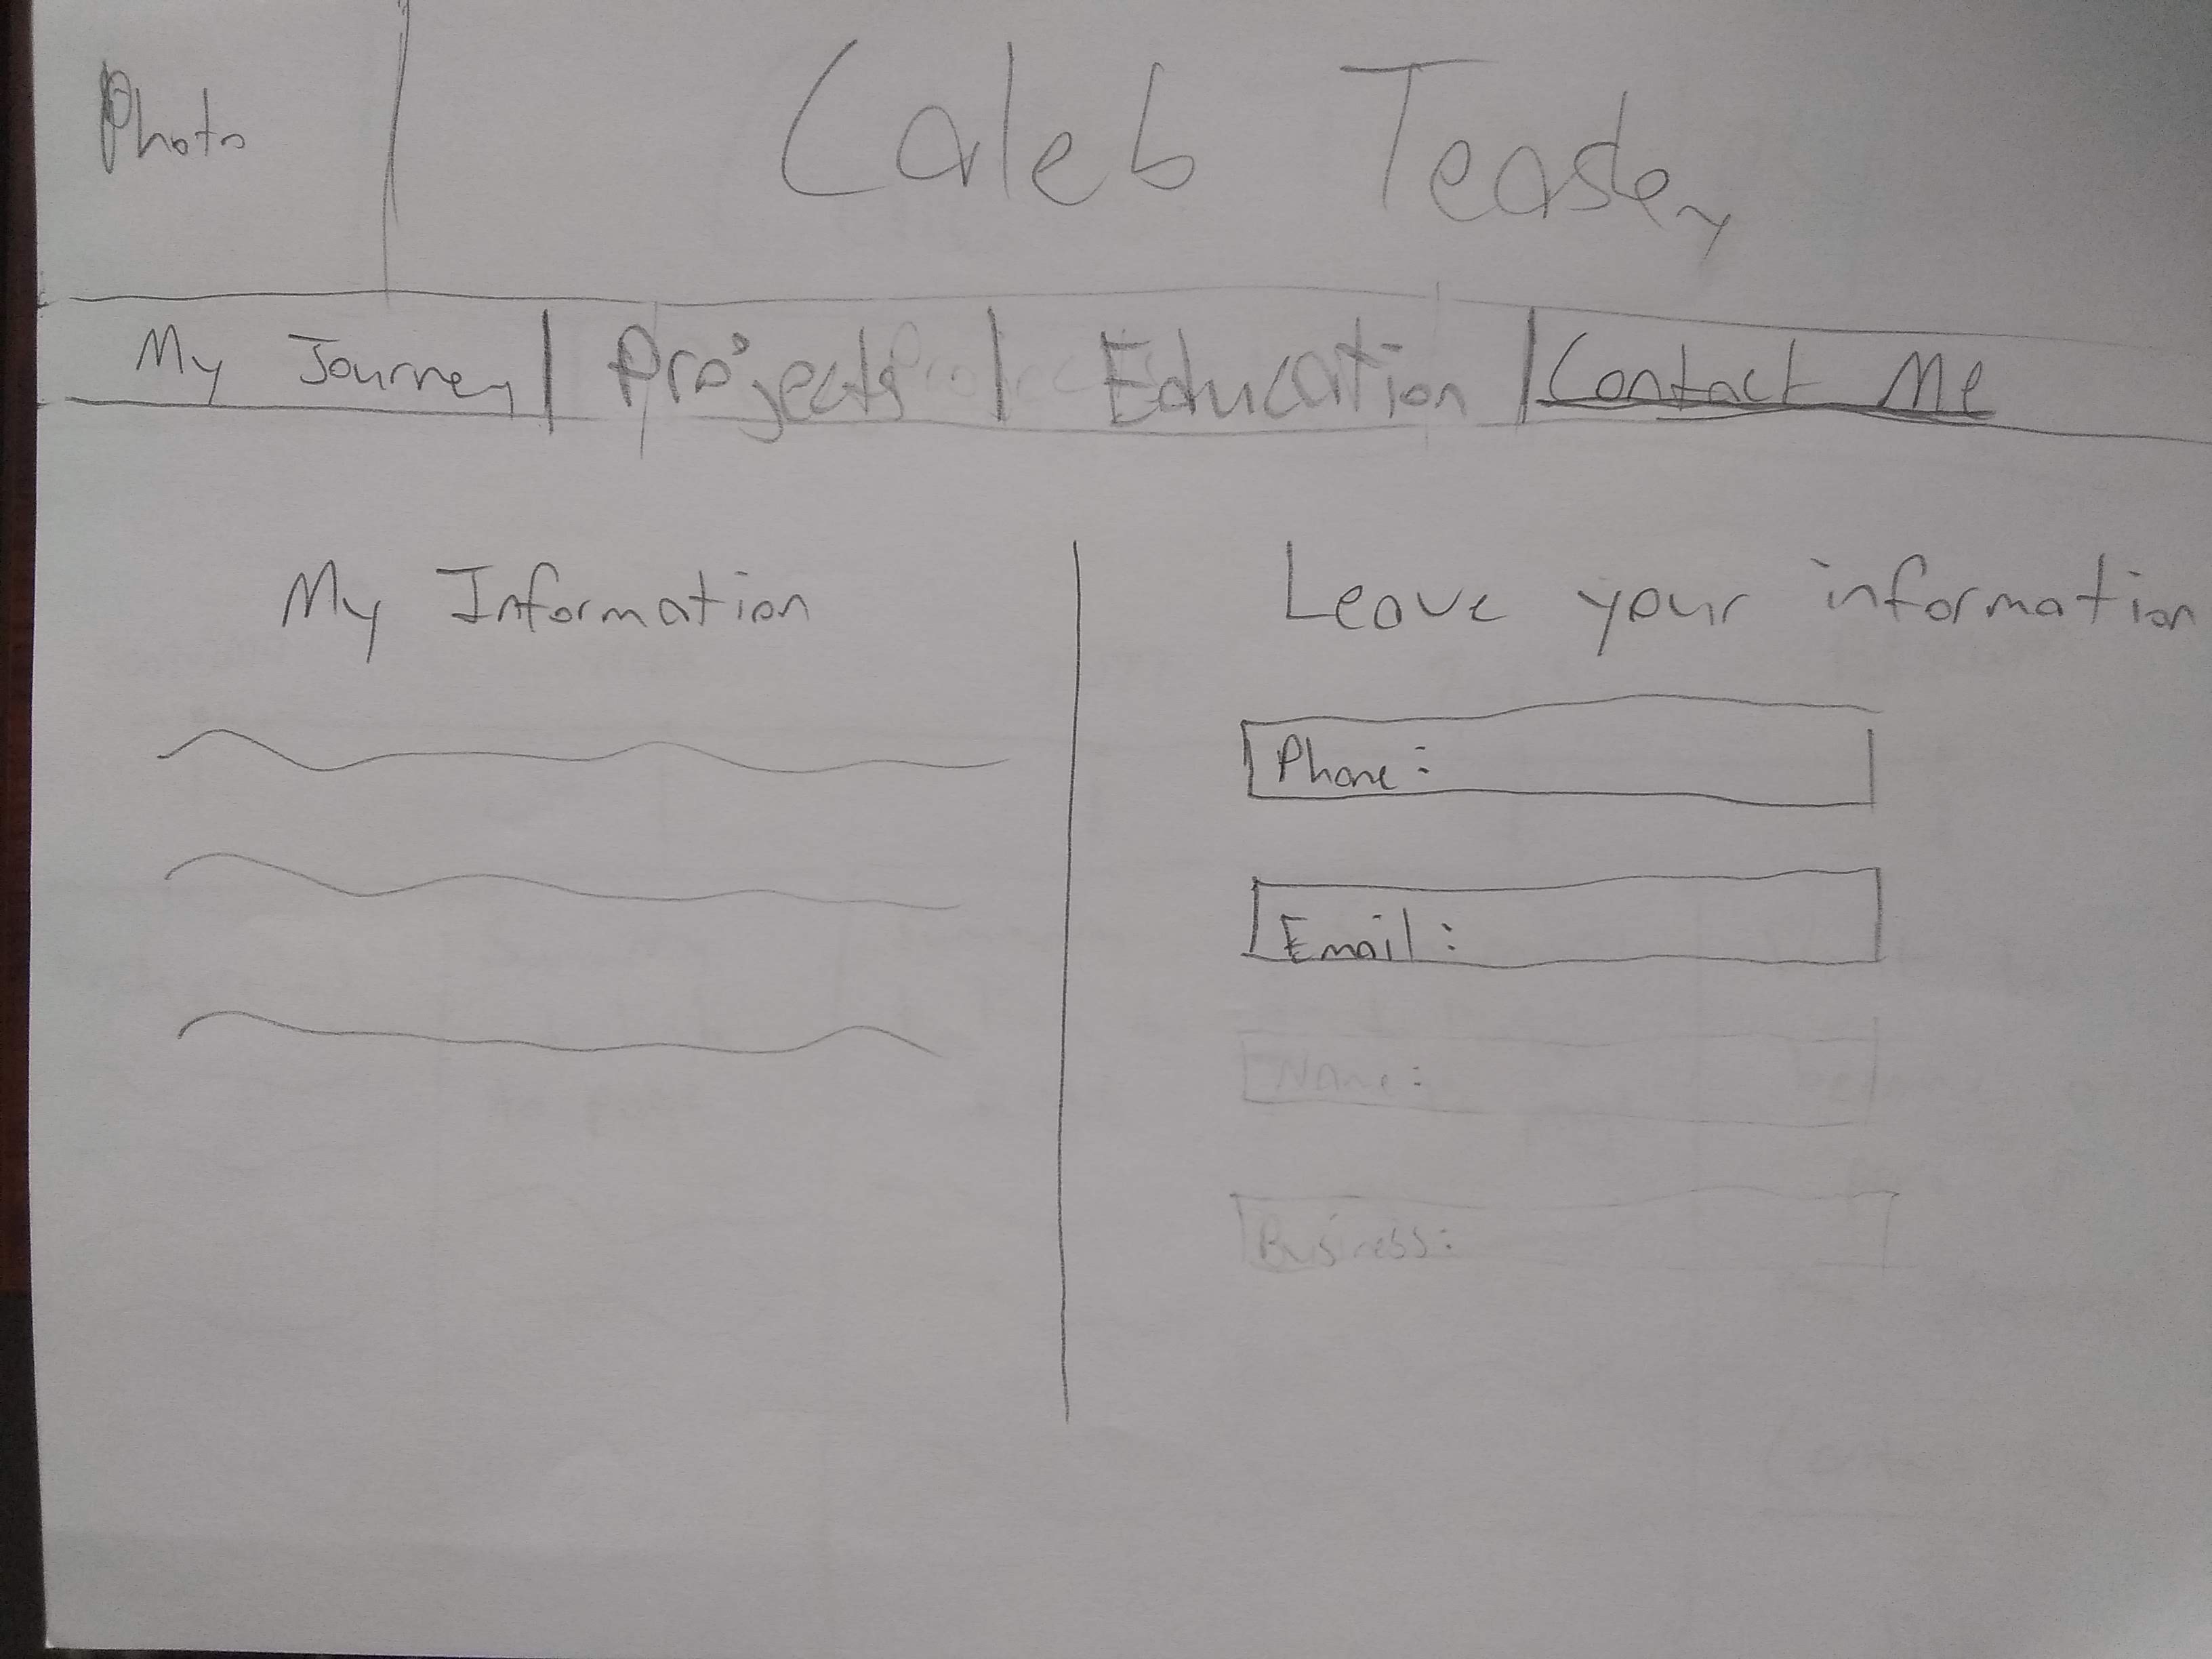 Photo
Caleb Teasley
My Journey | Projects | Education | Contact Me
My Information
Leave your information
Phone:
Email:
Name:
Business: